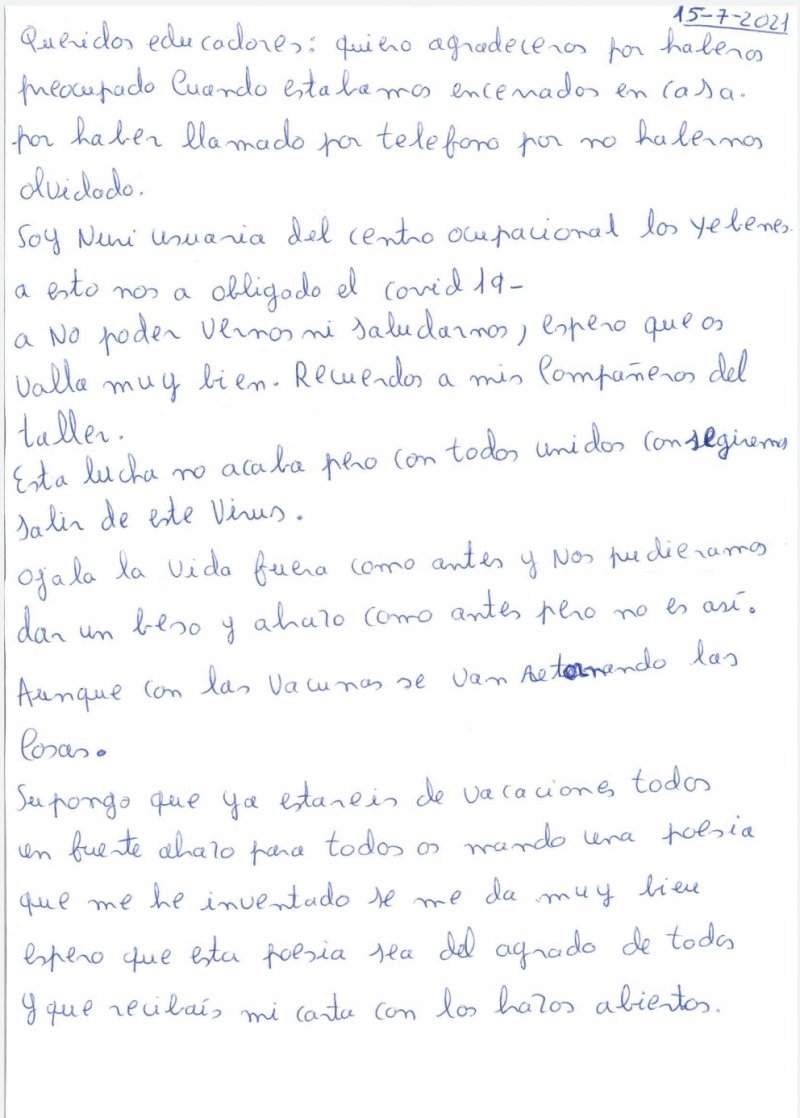 15-7-2021
Queridos educadores: quiero agradeceros por haberos
preocupado Cuando estabamos encerrados en casa.
por haber llamado por telefono por no habernos
olvidado.
Soy Nuri usuaria del centro ocupacional los yebenes.
a esto nos a obligado el covid 19-
a No poder vernos ni saludarnos, espero que os
valla muy bien. Recuerdos a mis Compañeros del
taller.
Esta lucha no acaba pero con todos unidos consegiremos
salir de este Virus.
ojala la vida fuera como antes y Nos pudieramos
dar un beso y abrazo como antes pero no es así.
Aunque con las vacunas se van retornando las
Cosas.
Supongo que ya estareis de vacaciones todos
un fuerte abrazo para todos os mando una poesia
que me he inventado se me da muy bien
espero que esta poesia sea del agrado de todos
y que recibaís mi carta con los brazos abiertos.